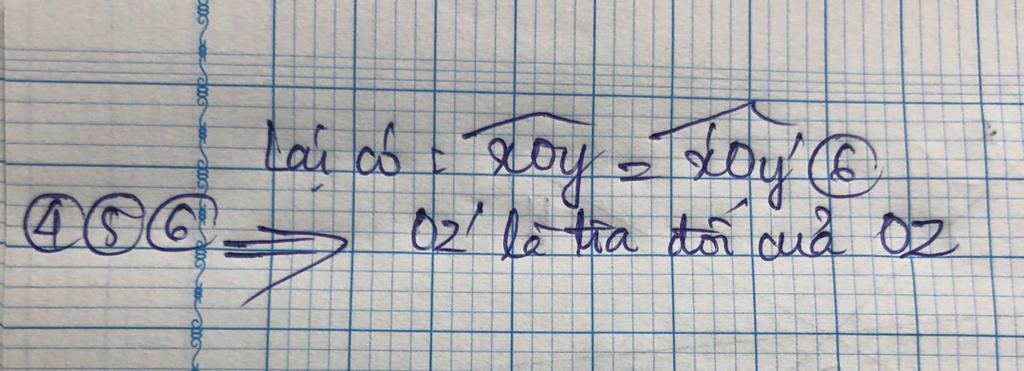 Lại có : xOy = x'Oy' ⑥
④ ⑤ ⑥ ⟹ Oz' là tia đối của Oz